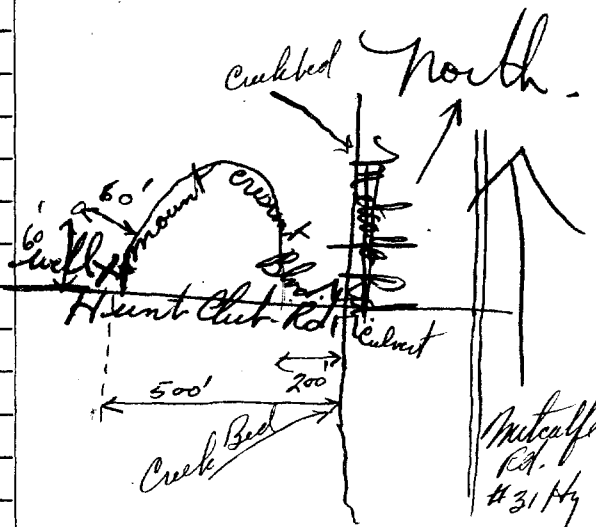 Creekbed
North.
60'
60'
well
mount
cresent
Hunt Club Rd
Culvert
500'
200'
Creek Bed
Metcalfe
Rd.
#31 Hy